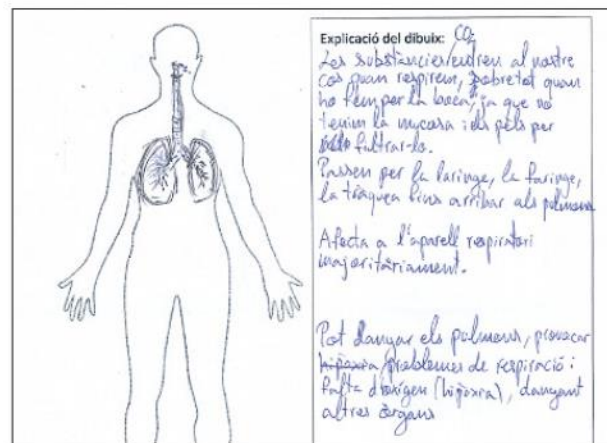 Explicació del dibuix: CO2
Les substàncies/entren al nostre
cos quan respirem, sobretot quan
ho fem per la boca, ja que no
tenim la mucosa i els pels per
filtrar-lo.
Passen per la laringe, la faringe,
la tràquea fins arribar als pulmons
Afecta a l'aparell respiratori
majoritàriament.
Pot danyar els pulmons, provocar
hipòxia/problemes de respiració i
falta d'oxigen (hipòxia), danyant
altres òrgans